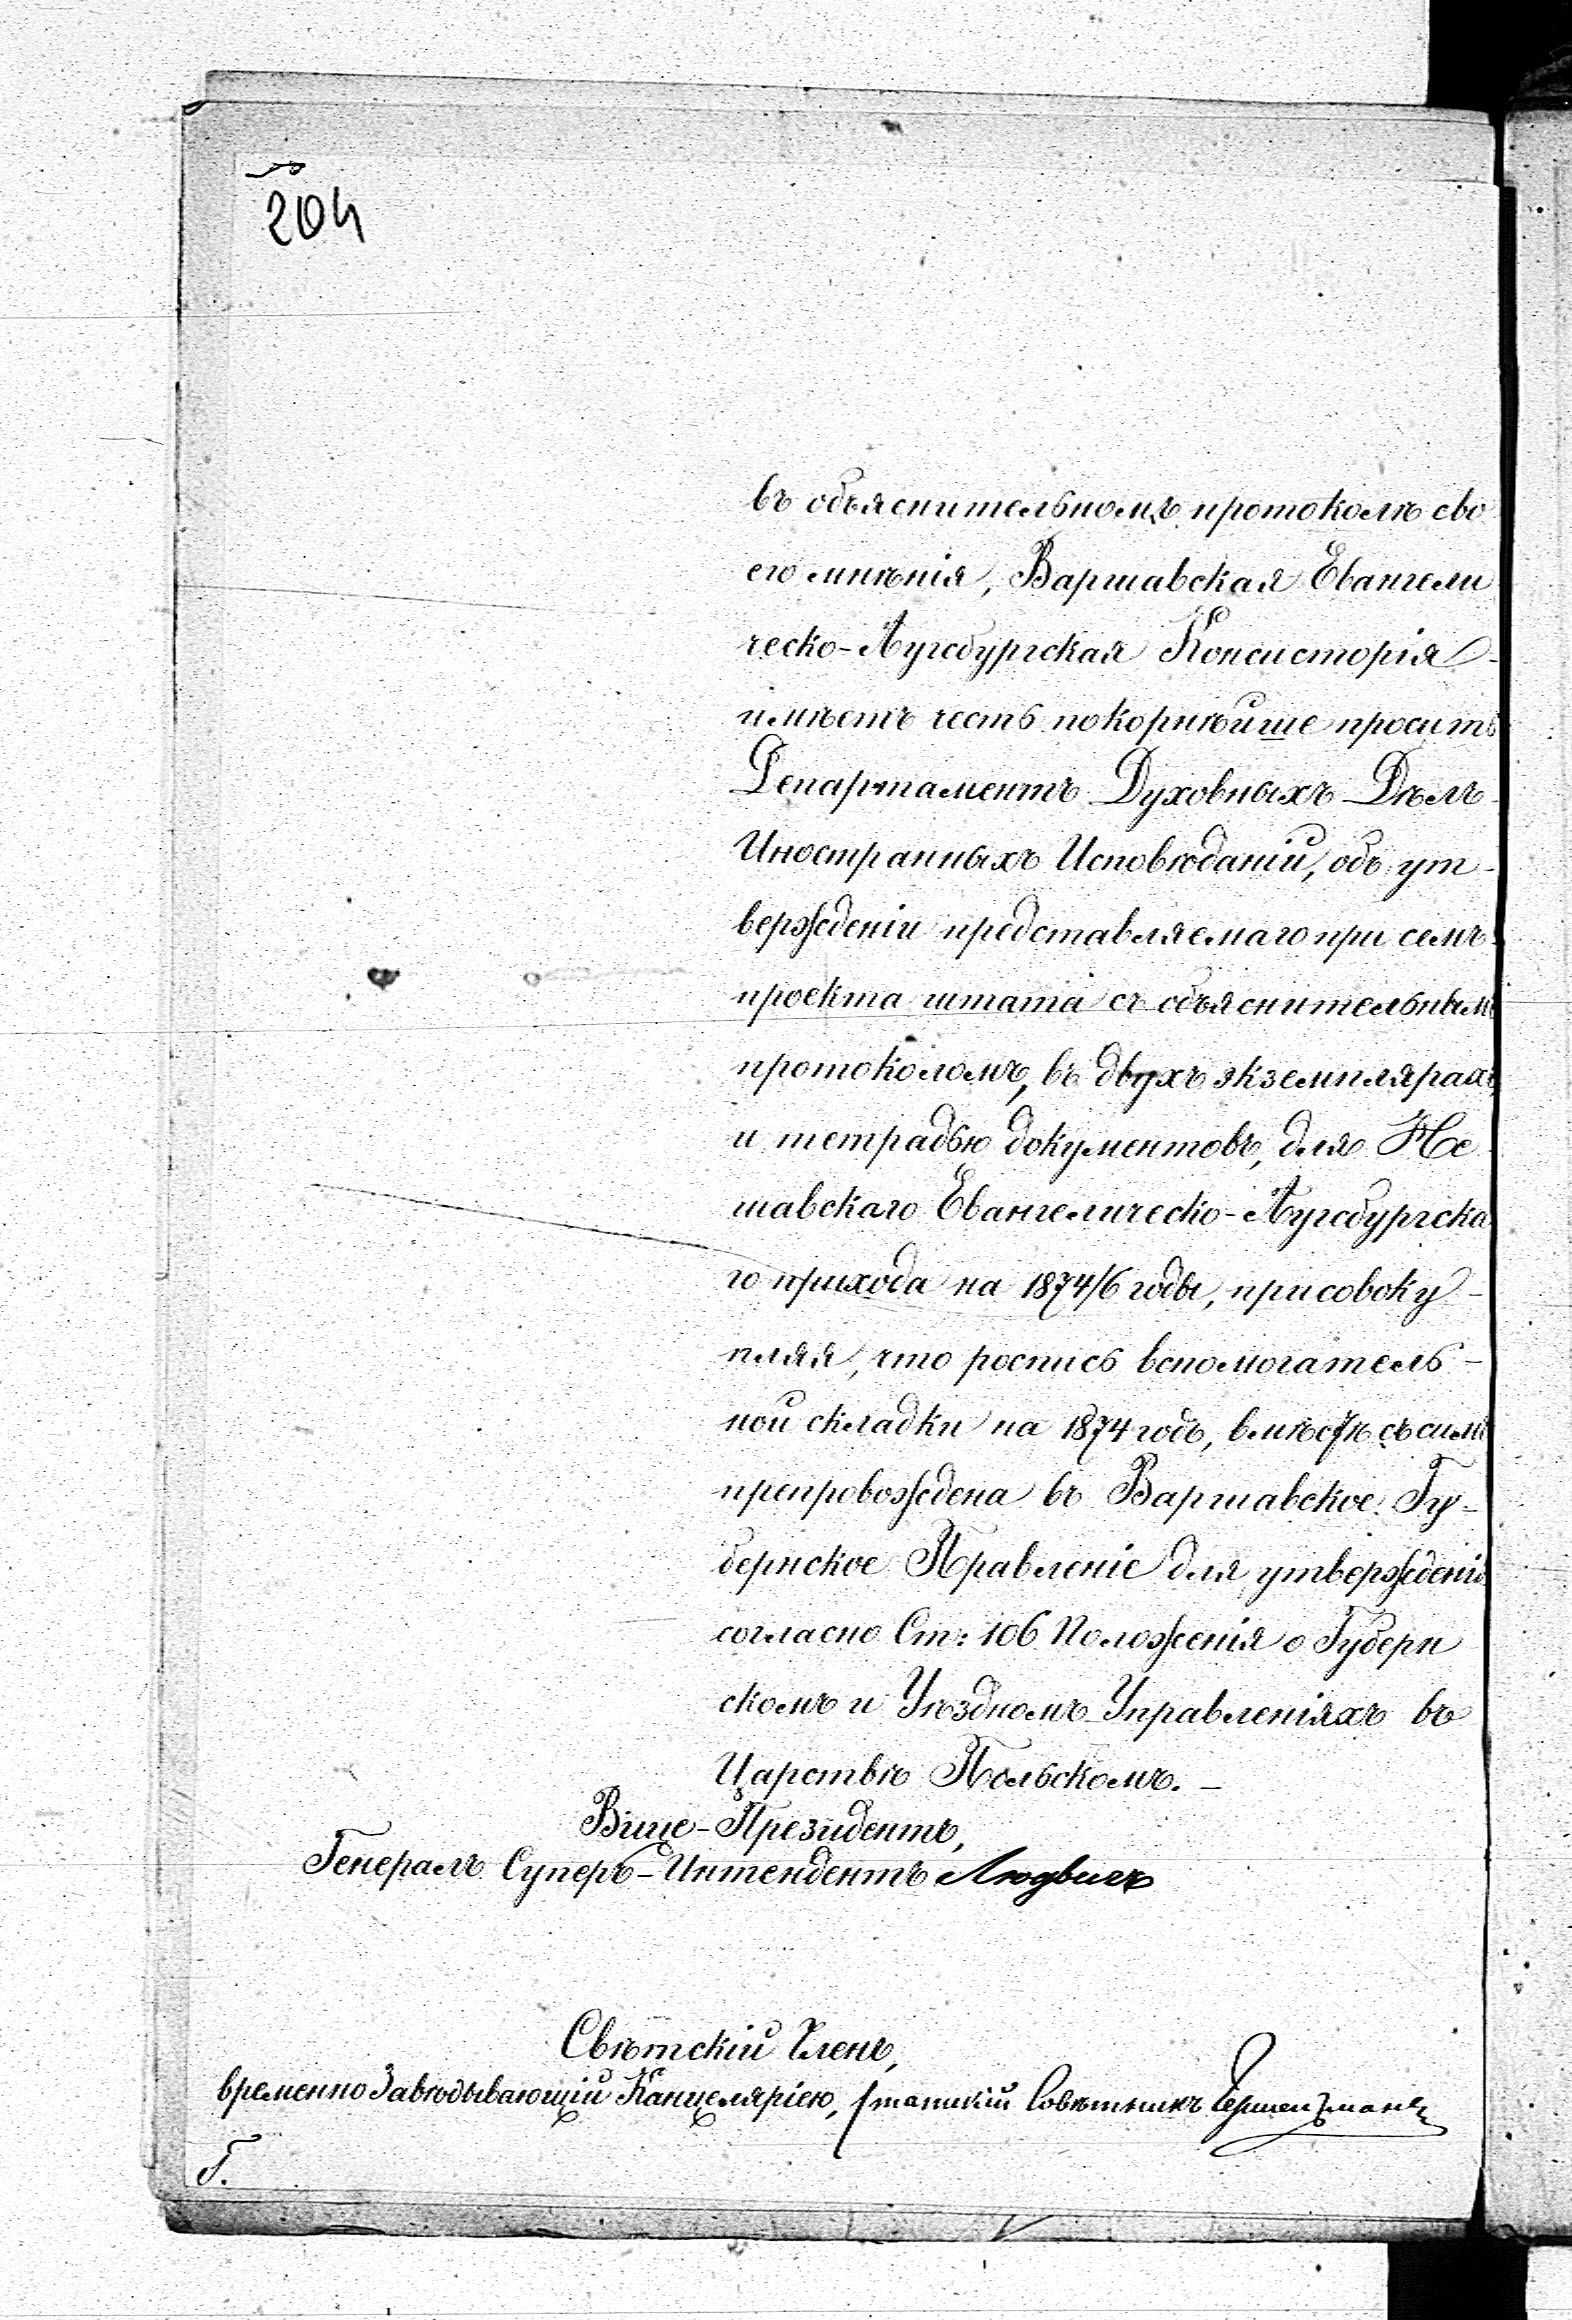 204
въ объяснительномъ протоколѣ сво
его мнѣнія, Варшавская Евангели
ческо-Аугсбургская Консисторія -
имѣетъ честь покорнѣйше просить
Департаментъ Духовныхъ Дѣлъ
Иностранныхъ Исповѣданій, объ ут-
вержденіи представляемаго при семъ
проекта штата съ объяснительнымъ
протоколомъ, въ двухъ экземплярахъ,
и тетрадью документовъ, для Не
шавскаго Евангелическо-Аугсбургска
го прихода на 1874/6 годы, присовоку-
пляя, что роспись вспомогатель-
ной складки на 1874 годъ, вмѣстѣ съ симъ
препровождена въ Варшавское Гу-
бернское Правленіе для утвержденія
согласно Ст: 106 Положенія о Губерн
скомъ и Уѣздномъ Управленіяхъ въ
Царствѣ Польскомъ. -
Вице-Президентъ,
Генералъ Суперъ-Интендентъ Людвигъ
Свѣтскій Членъ,
временно Завѣдывающій Канцеляріею, Статскій Совѣтникъ
Г.